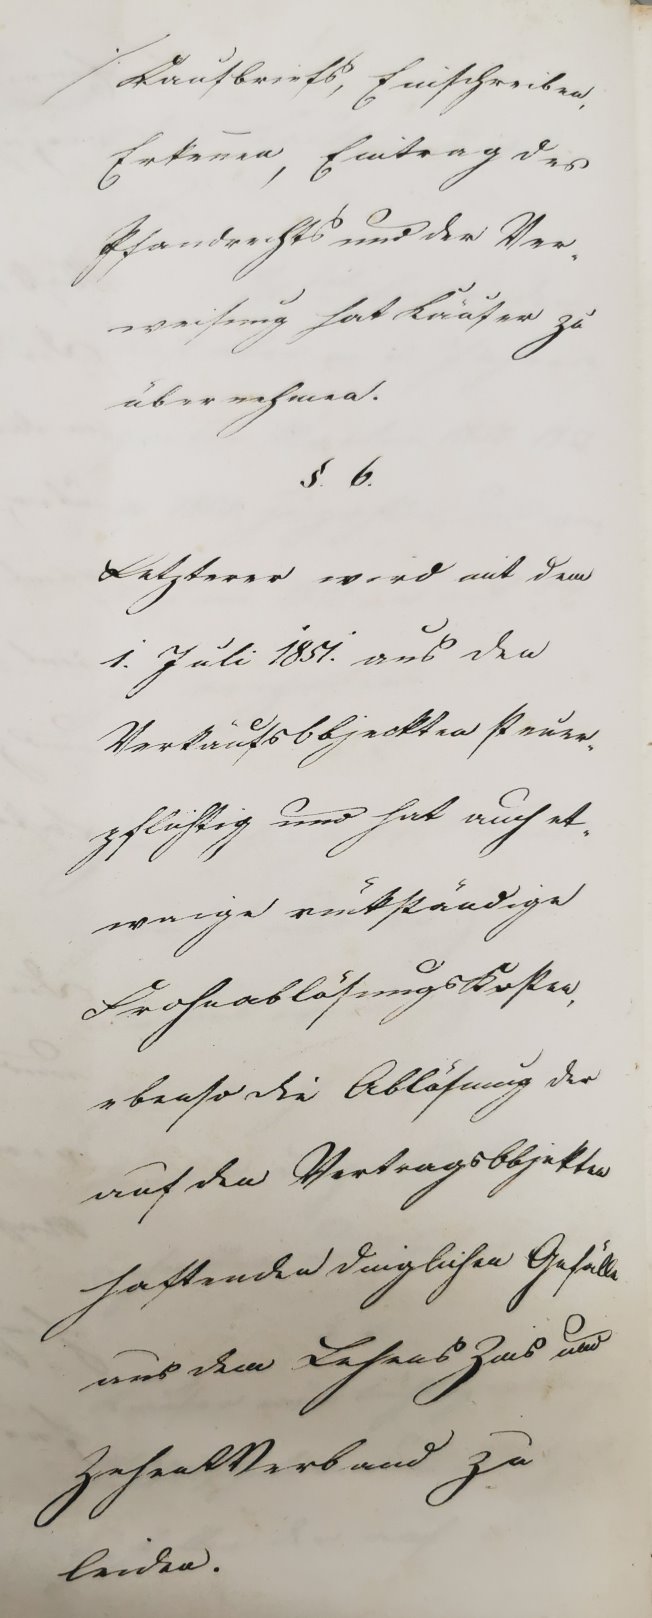 Kaufbriefs, Einschreiben,
Erkennen, Eintrag des
Pfandrechts und der Ver-
weisung hat Käufer zu
übernehmen.
§. 6.
Letzterer wird mit dem
1. Juli 1851. aus den
Verkaufsobjeckten steuer-
pflichtig und hat auch et-
waige rückständige
Frohnablösungskosten,
ebenso die Ablösung der
auf den Vertragsobjekten
haftenden dinglichen Gefälle
aus dem Lehens Zins und
Zehent Verband zu
leiden.